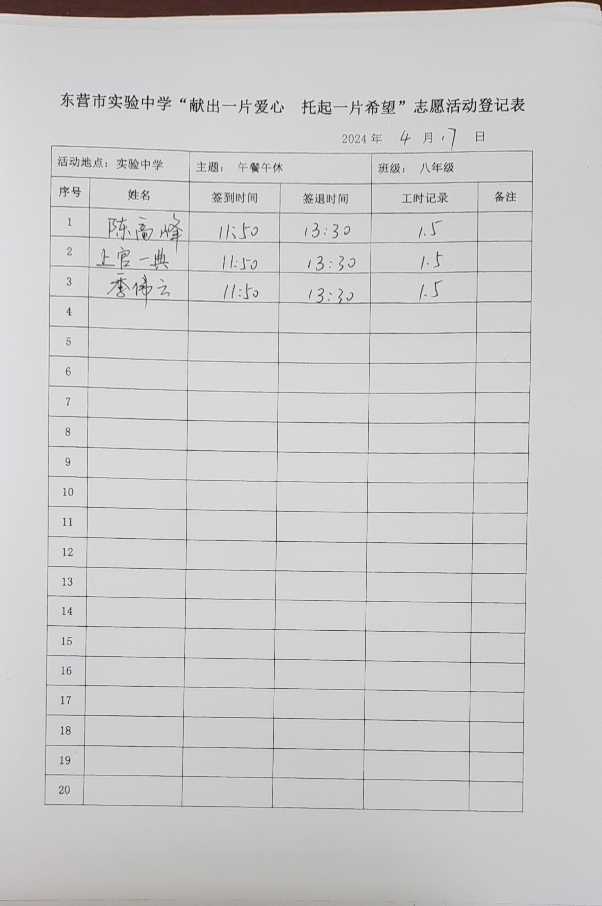 东营市实验中学“献出一片爱心 托起一片希望”志愿活动登记表
2024年 4 月 17 日
活动地点：实验中学 主题： 午餐午休 班级： 八年级
序号 姓名 签到时间 签退时间 工时记录 备注
1 陈高峰 11:50 13:30 1.5
2 上官一典 11:50 13:30 1.5
3 季伟云 11:50 13:30 1.5
4
5
6
7
8
9
10
11
12
13
14
15
16
17
18
19
20